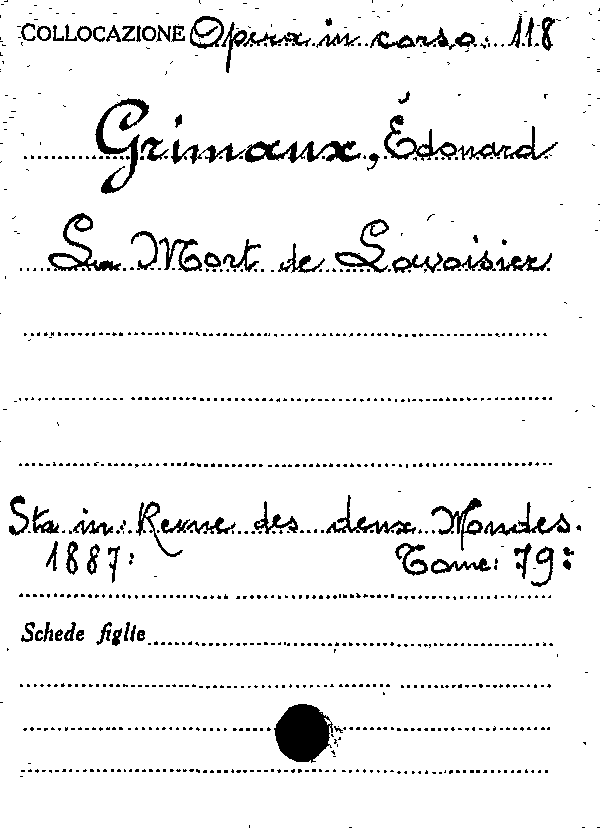 COLLOCAZIONE Opera in corso. 118
Grimaux, Édouard
La Mort de Lavoisier
Sta in: Revue des deux Mondes.
1887: Tome: 79:
Schede figlie